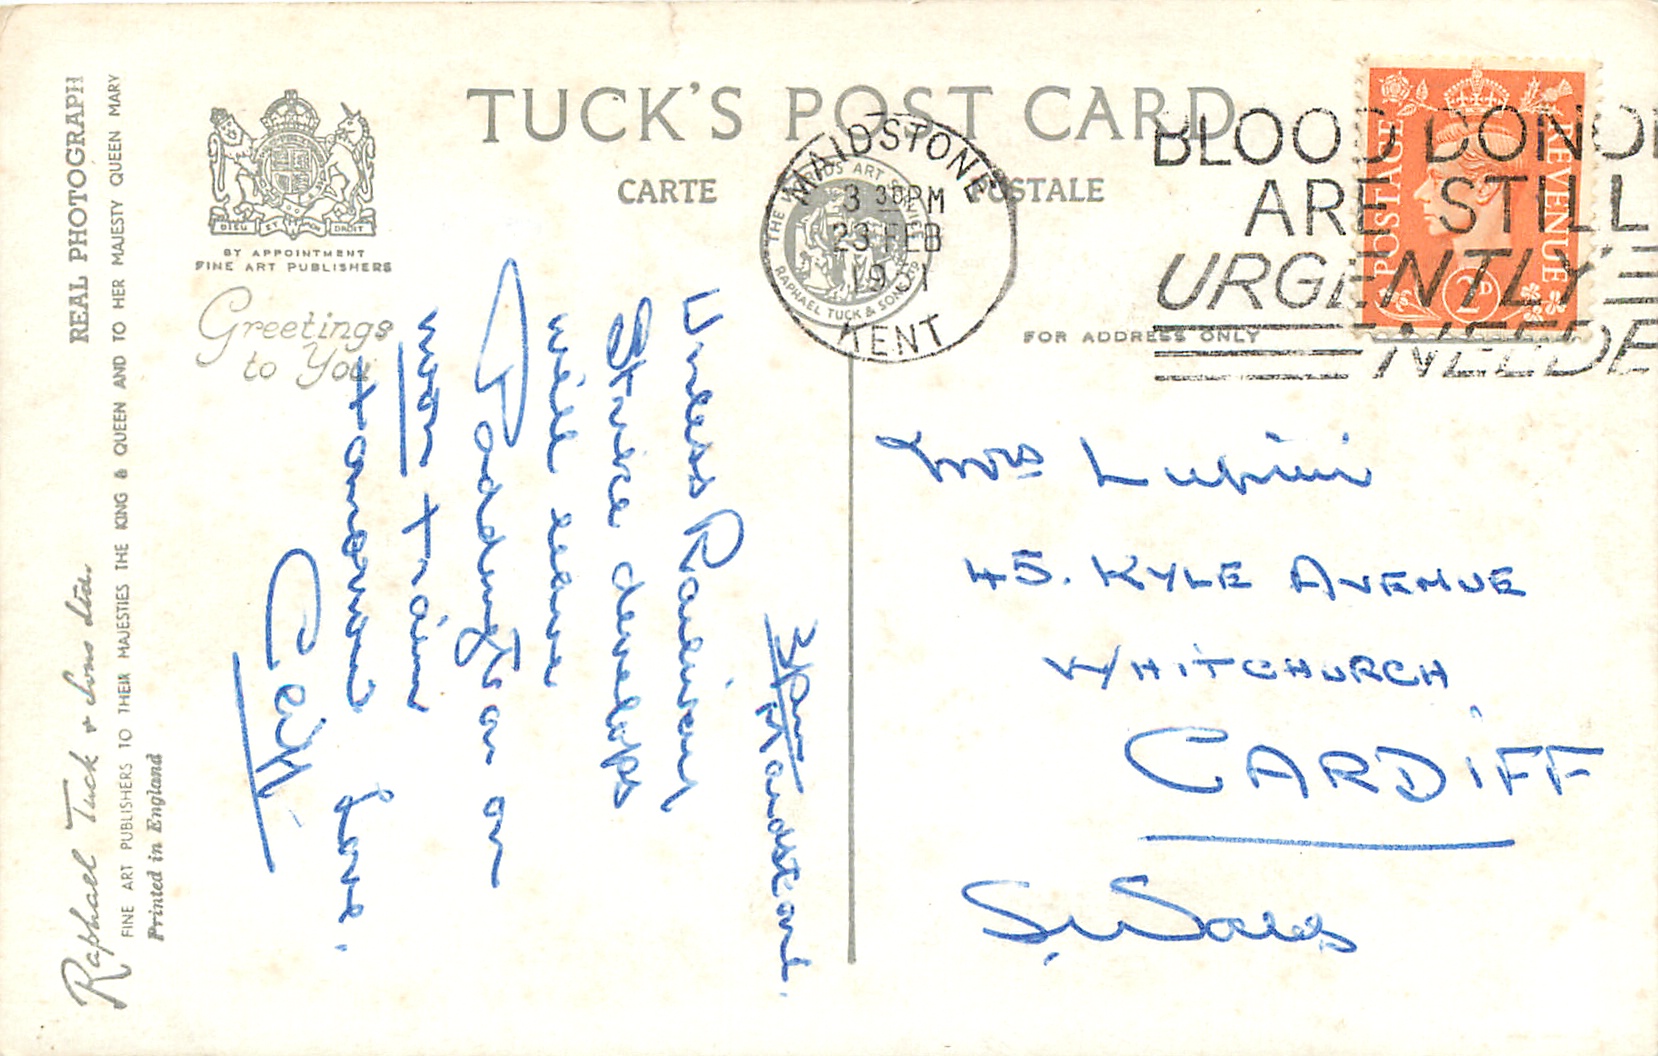 TUCK'S POST CARD
CARTE POSTALE
BY APPOINTMENT
FINE ART PUBLISHERS
Greetings
to You
REAL PHOTOGRAPH
Raphael Tuck & Sons Ltd.
FINE ART PUBLISHERS TO THEIR MAJESTIES THE KING & QUEEN AND TO HER MAJESTY QUEEN MARY
Printed in England
THE WORLDS ART SERVICE
RAPHAEL TUCK & SONS LTD
DIEU ET MON DROIT
MAIDSTONE
3 30 PM
23 FEB
1951
KENT
BLOOD DONO
ARE STILL
URGENTLY
NEEDE
POSTAGE REVENUE
2D
FOR ADDRESS ONLY
Maidstone.
Unless Railway
Strike develops
will leave
Paddington on
train
tomorrow Love.
Keith
Mrs Lupini
45. KYLE AVENUE
WHITCHURCH
CARDIFF
S. Wales